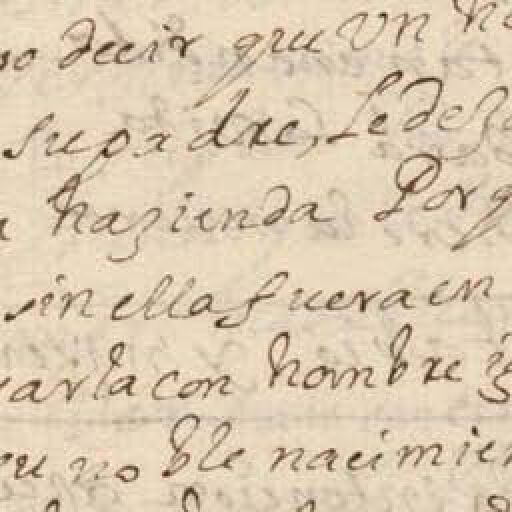 no decir que Vn h
su padre, Le dez
a hazienda Porq
sin ella fuera en
rarla con hombre ig
su noble nacimien